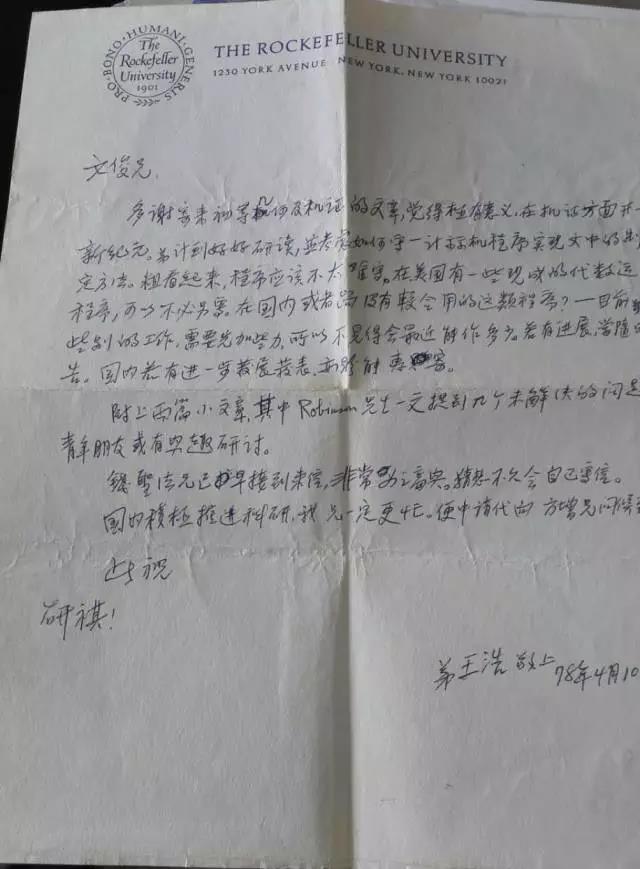 PRO·BONO·HUMANI·GENERIS
The
Rockefeller
University
1901
THE ROCKEFELLER UNIVERSITY
1230 YORK AVENUE NEW YORK, NEW YORK 10021
文俊兄,
多谢寄来初等几何及机证的文章,觉得极有意义,在机证方面开一
新纪元。打计到好好研读,并考虑如何写一计算机程序实现文中的判
定方法。粗看起来,程序应该不太难写。在美国有一些现成的代数运
程序,可以不必另写。在国内或者 没有较合用的这类程序?—目前
些别的工作,需要先加些力,所以不见得会最近能作多少。若有进展,当随时
告。国内若有进一步发展发表,亦盼能惠寄。
附上两篇小文章,其中Robinson先生一文提到九个未解决的问题
青年朋友或有兴趣研讨。
钱圣发兄已早接到来信,非常高兴。猜想不久会自己 信。
国内积极推进科研,我兄一定更忙。便中请代向 方增兄问候
此祝
研祺!
弟王浩敬上
78年4月10